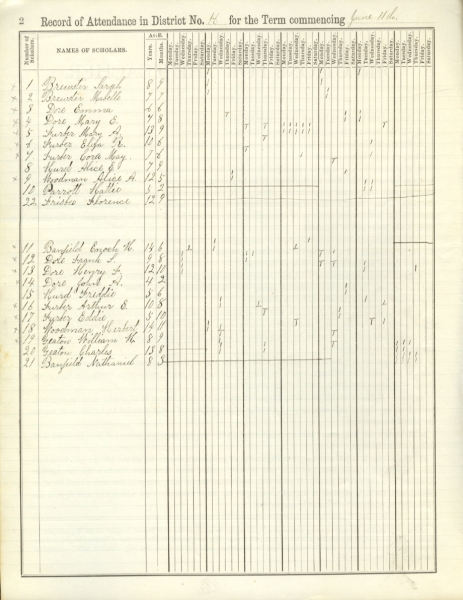 2 Record of Attendance in District No. 4 for the Term commencing June 11th
Number of Scholars. NAMES OF SCHOLARS. AGE. Years. Months. Monday. Tuesday. Wednesday. Thursday. Friday. Saturday. Monday. Tuesday. Wednesday. Thursday. Friday. Saturday. Monday. Tuesday. Wednesday. Thursday. Friday. Saturday. Monday. Tuesday. Wednesday. Thursday. Friday. Saturday. Monday. Tuesday. Wednesday. Thursday. Friday. Saturday. Monday. Tuesday. Wednesday. Thursday. Friday. Saturday. Monday. Tuesday. Wednesday. Thursday. Friday. Saturday.
1 Brewster Sarah 8 9
2 Brewster Mabelle 7 7
3 Dore Emma 6 6
4 Dore Mary E. 7 8
5 Furber Mary A. 13 9
6 Furber Eliza R. 10 6
7 Furber Cora May. 7 6
8 Hurd Alice E. 7 9
9 Woodman Alice A. 12 5
10 Parrott Hattie 5 2
22 Frisbee Florence 12 9
11 Banfield Enoch H. 13 6
12 Dore Frank S. 9 8
13 Dore Henry F. 12 10
14 Dore John A. 4 2
15 Hurd Freddie 5 6
16 Furber Arthur E. 10 8
17 Furber Eddie 5 10
18 Woodman Herbert 14 11
19 Yeaton William H. 8 9
20 Yeaton Charles 13 8
21 Banfield Nathaniel 8 3